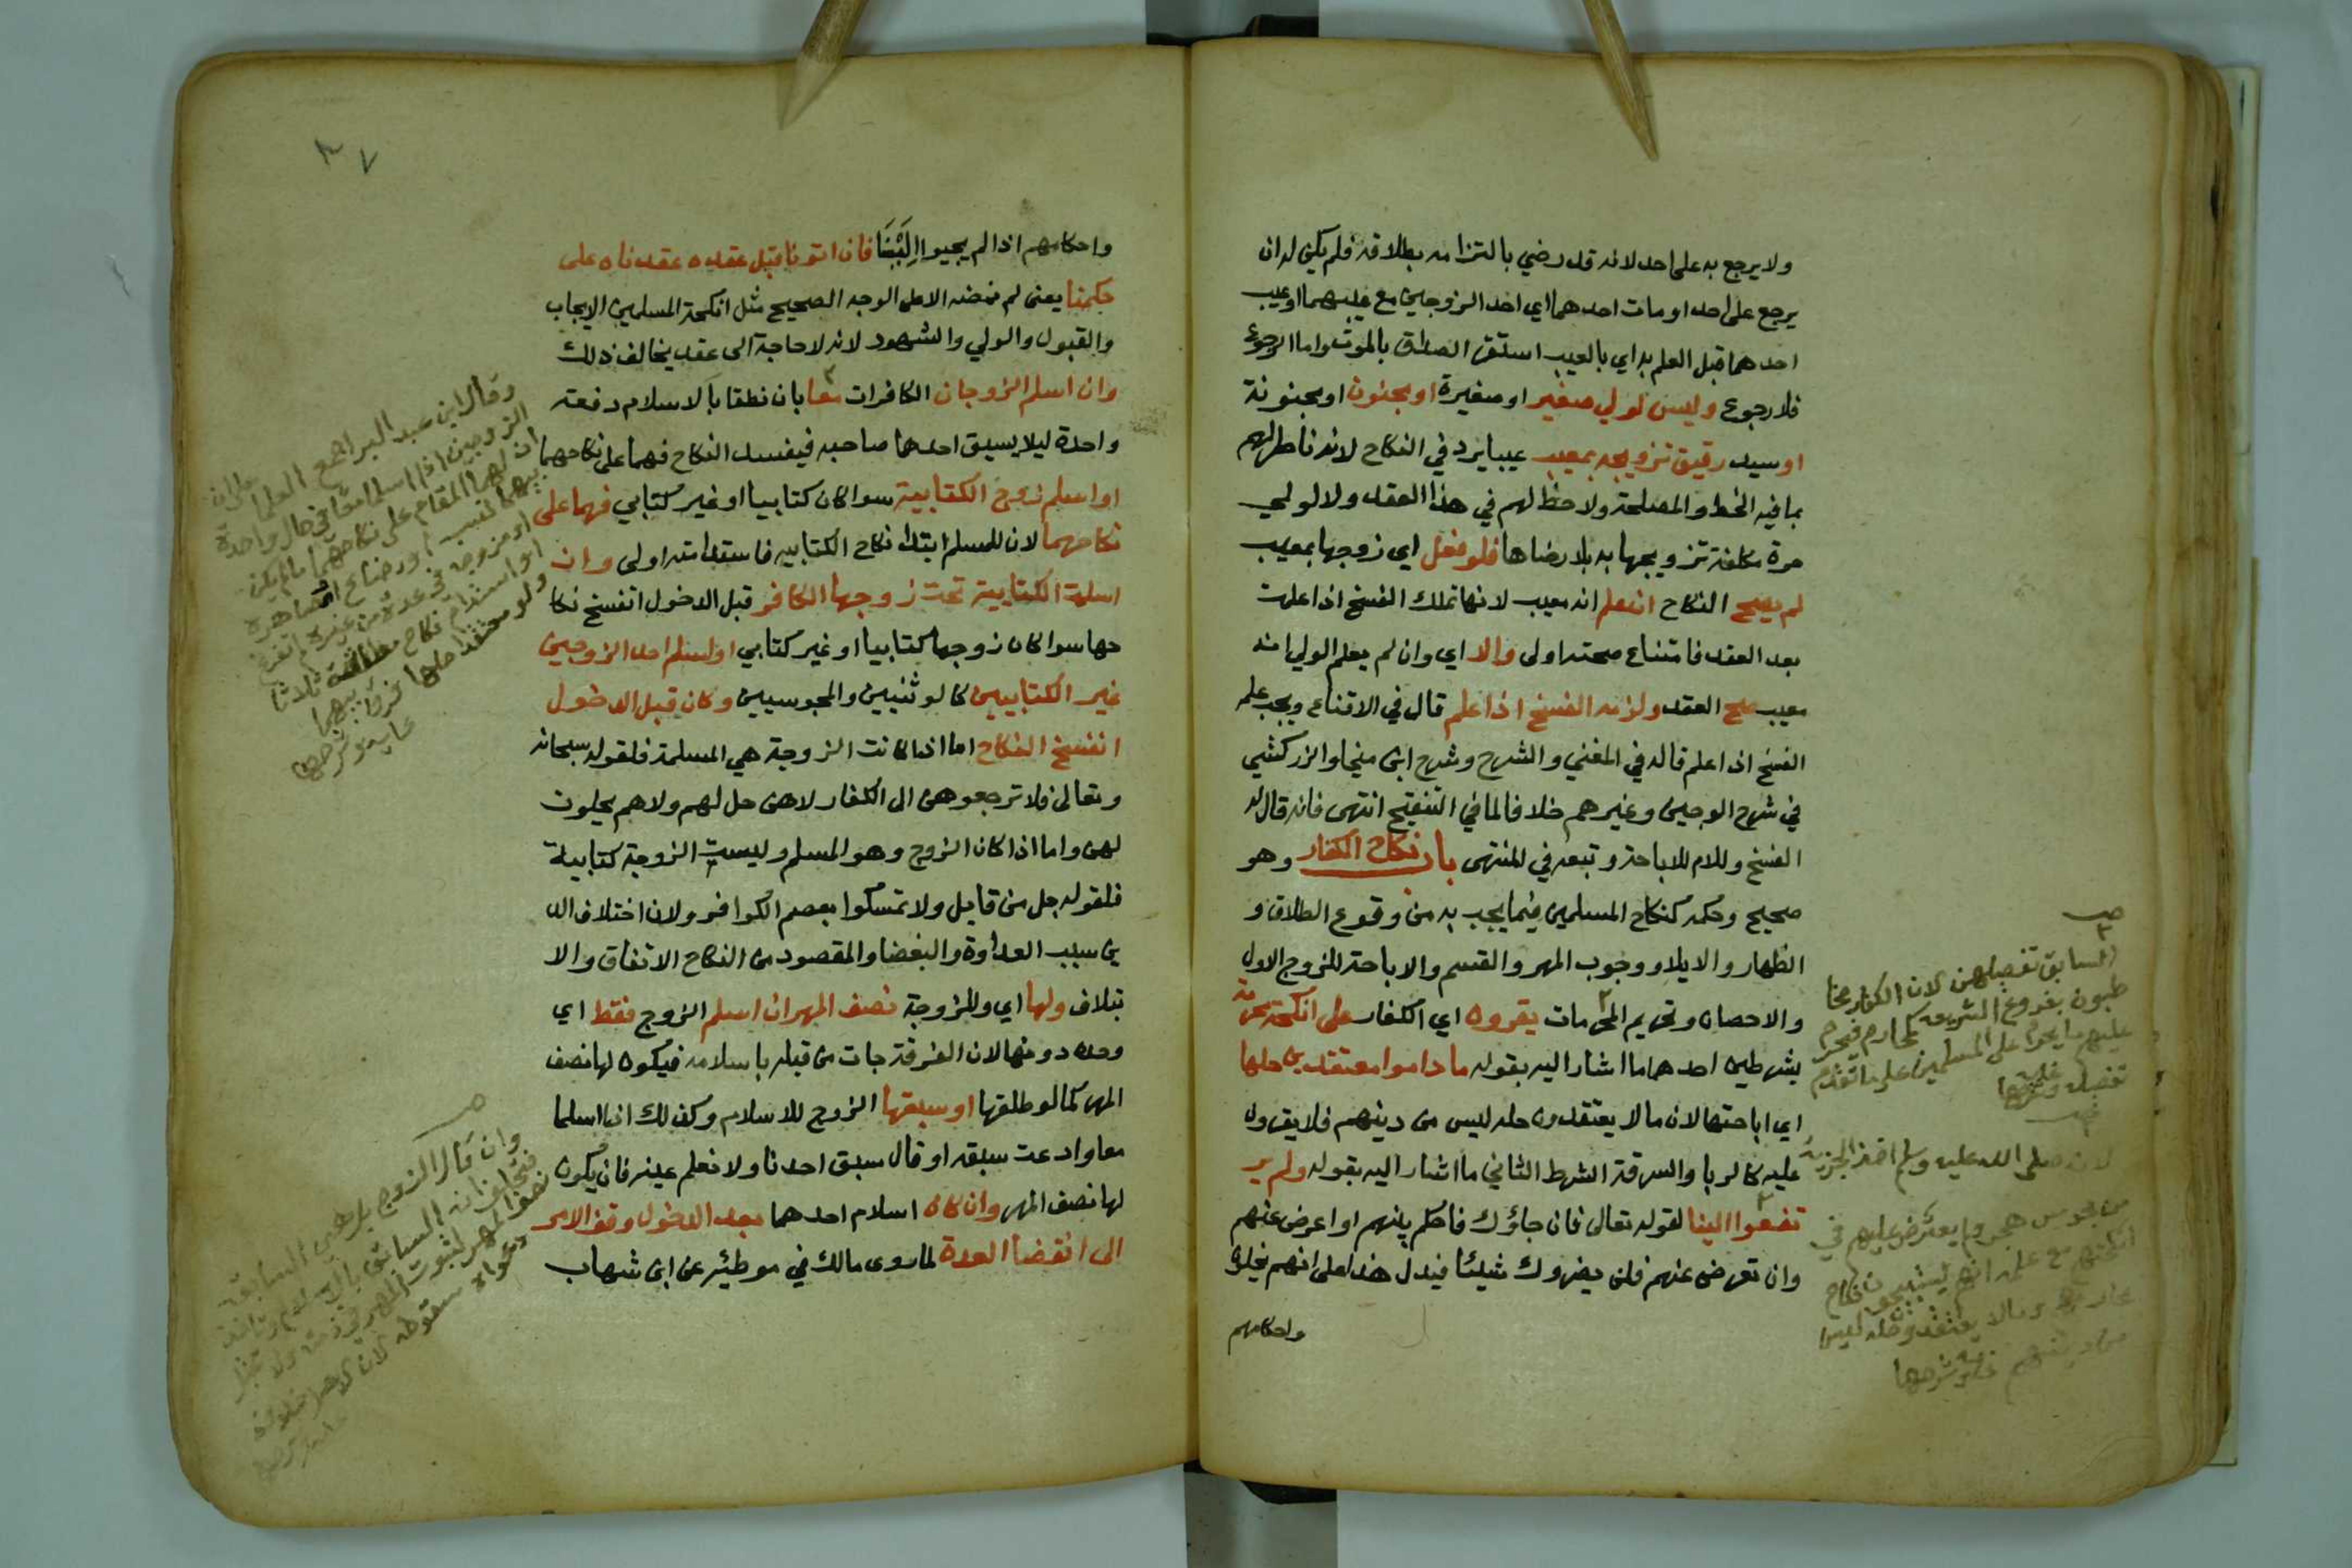 ولا يرجع به على احد لانه قد رضي بالتزامه بطلاقه فلم يكن له ان
يرجع على احد او مات احدهما اي احد الزوجين مع عيبهما او عيب
احدهما قبل العلم به اي بالعيب استقر الصداق بالموت واما الرجوع
فلا رجوع وليس لولي صغير او صغيرة او مجنون او مجنونة
او سيد رقيق تزويجه بمعيب عيبا يرد في النكاح لانه ناظر لهم
بما فيه الحظ والمصلحة ولا حظ لهم في هذا العقد ولا لولي
حرة مكلفة تزويجها به بلا رضاها فلو فعل اي زوجها بمعيب
لم يصح النكاح ان علم انه معيب لانها تملك الفسخ اذا علمت
بعد العقد فامتناع صحته اولى والا اي وان لم يعلم الولي انه
معيب صح العقد ولزمه الفسخ اذا علم قال في الاقناع ويجب عليه
الفسخ اذا علم قاله في المغني والشرح وشرح ابن منجا والزركشي
في شرح الوجيز وغيرهم خلافا لما في التنقيح انتهى فانه قال له
الفسخ واللام للاباحة وتبعه في المنتهى باب نكاح الكفار وهو
صحيح وحكمه كنكاح المسلمين فيما يجب به من وقوع الطلاق و
الظهار والايلا ووجوب المهر والقسم والاباحة للزوج الاول
والاحصان وتحريم المحرمات يقرون اي الكفار على انكحة محرمة
بشرطين احدهما ما اشار اليه بقوله ما داموا معتقدين حلها
اي اباحتها لان ما لا يعتقدون حله ليس من دينهم فلا يقرون
عليه كالربا والسرقة الشرط الثاني ما اشار اليه بقوله ولم ير
تفعوا الينا لقوله تعالى فان جاؤك فاحكم بينهم او اعرض عنهم
وان تعرض عنهم فلن يضروك شيئا فيدل هذا على انهم يخلون
واحكامهم
السابق تفصيلهن لان الكفار مخا
طبون بفروع الشريعة كمحارم فيحرم
عليهم ما يحرم على المسلمين على ما تقدم
تفصيله
لانه صلى الله عليه وسلم اخذ الجزية
من مجوس هجر ولم يعترض عليهم في
انكحتهم مع علمه انهم يستبيحون نكاح
محارمهم وما لا يعتقدون حله ليس
من دينهم
٣٧
واحكامهم اذا لم يجيوا اِلَيْنَا فان اتونا قبل عقده عقدناه على
حكمنا يعني لم نمضه الا على الوجه الصحيح مثل انكحة المسلمين الايجاب
والقبول والولي والشهود لانه لا حاجة الى عقد يخالف ذلك
وان اسلم الزوجان الكافران معا بان نطقا بالاسلام دفعة
واحدة ليلا يسبق احدهما صاحبه فيفسد النكاح فهما على نكاحهما
او اسلم زوج الكتابية سوا كان كتابيا او غير كتابي فهما على
نكاحهما لان للمسلم ابتدا نكاح الكتابيه فاستدامته اولى وان
اسلمت الكتابية تحت زوجها الكافر قبل الدخول انفسخ نكا
حها سوا كان زوجها كتابيا او غير كتابي او اسلم احد الزوجين
غير الكتابيين كالوثنيين والمجوسيين وكان قبل الدخول
انفسخ النكاح اما اذا كانت الزوجة هي المسلمة فلقوله سبحانه
وتعالى فلا ترجعوهن الى الكفار لا هن حل لهم ولا هم يحلون
لهن واما اذا كان الزوج وهو المسلم وليست الزوجة كتابية
فلقوله جل من قايل ولا تمسكوا بعصم الكوافر ولان اختلاف الد
ين سبب العداوة والبغضا والمقصود من النكاح الاتفاق والا
تيلاف ولها اي وللزوجة نصف المهر ان اسلم الزوج فقط اي
وحده دونها لان الفرقة جات من قبله باسلامه فيكون لها نصف
المهر كما لو طلقها او سبقها الزوج للاسلام وكذلك ان اسلما
معا وادعت سبقه او قال سبق احدنا ولا نعلم عينه فان يكون
لها نصف المهر وان كان اسلام احدهما بعد الدخول وقف الامر
الى انقضا العدة لما روى مالك في موطئه عن ابن شهاب
وقال ابن عبد البر اجمع العلما على ان
الزوجين اذا اسلما معا في حال واحدة
ان لهما المقام على نكاحهما ما لم يكن
بينهما نسب او رضاع او مصاهرة
او مزوجه في عدة من غيره لم تفرغ
او استدام نكاح مطلقته ثلاثا
ولو معتقدا حلها فرق بينهما
وان قال الزوج لم يعلم السابق
فتحلف انه السابق بالاسلام وتاخذ
نصف المهر لثبوت المهر في ذمته ولا تقبل
دعواه سقوطه لان الاصل خلافه